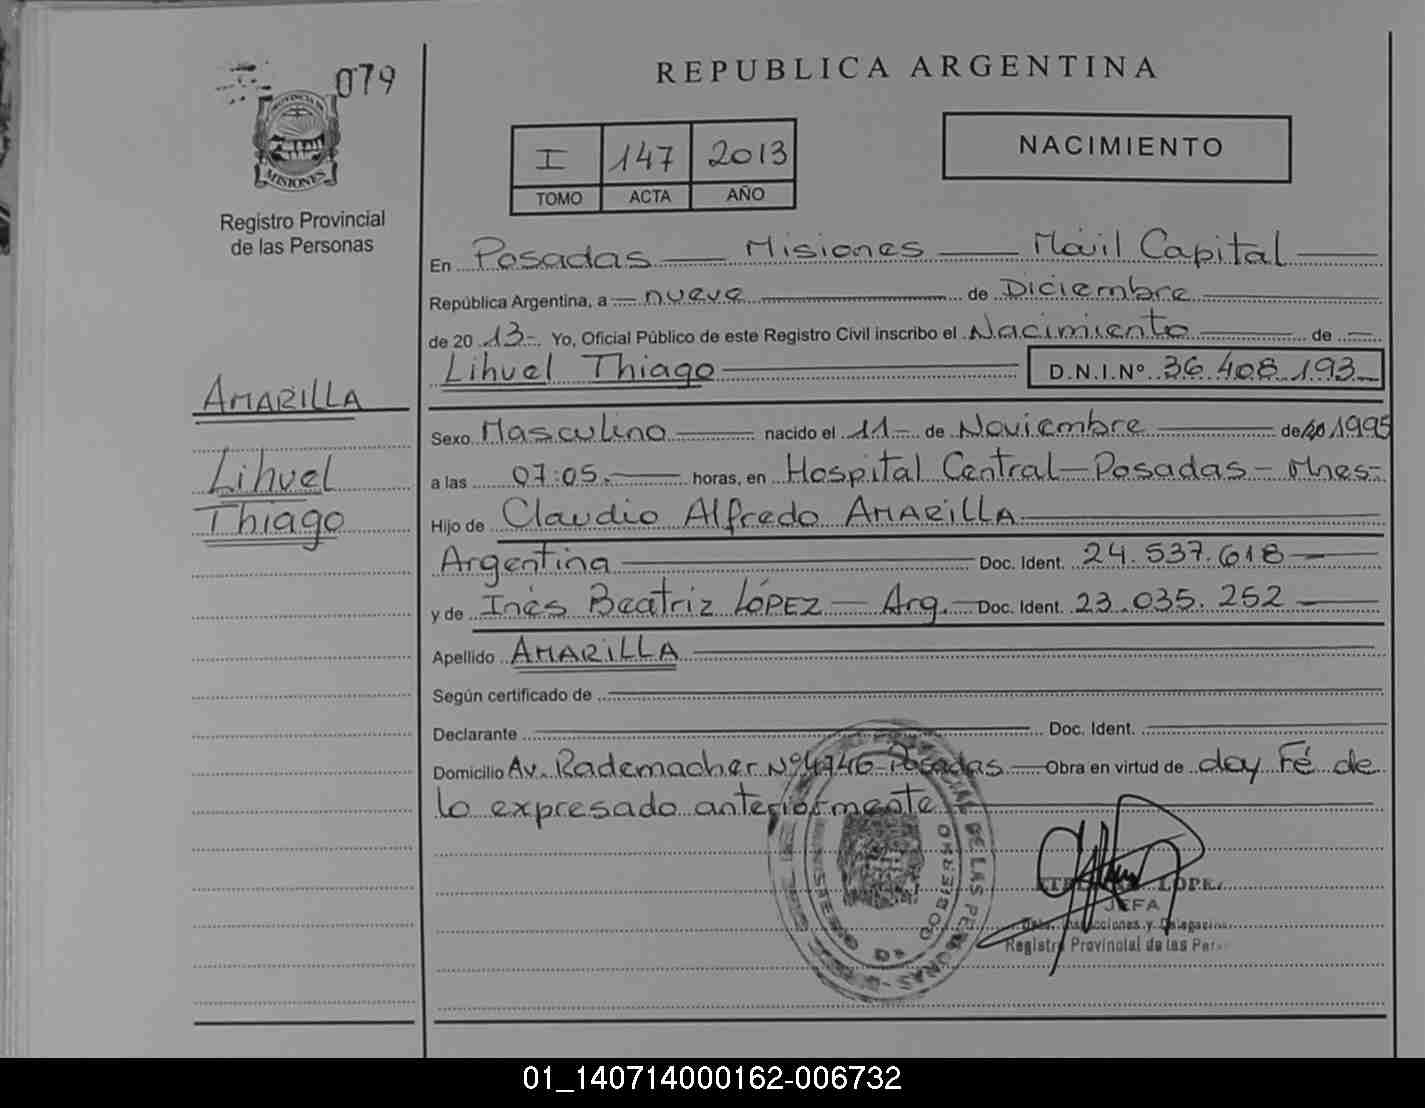 079
PROVINCIA DE
MISIONES
Registro Provincial
de las Personas
AMARILLA
Lihuel
Thiago
REPUBLICA ARGENTINA
I 147 2013
TOMO ACTA AÑO
NACIMIENTO
En Posadas — Misiones — Móvil Capital
República Argentina, a nueve de Diciembre
de 20 13- Yo, Oficial Público de este Registro Civil inscribo el Nacimiento de
Lihuel Thiago D.N.I.Nº 36.408.193
Sexo Masculino nacido el 11 de Noviembre de 1995
a las 07:05. horas, en Hospital Central - Posadas - Mnes-
Hijo de Claudio Alfredo AMARILLA
Argentina Doc. Ident. 24.537.618
y de Inés Beatriz LÓPEZ — Arg. Doc. Ident. 23.035.252
Apellido AMARILLA
Según certificado de
Declarante Doc. Ident.
Domicilio Av. Rademacher Nº 4746 Posadas Obra en virtud de doy Fé de
lo expresado anteriormente
DE LAS PERSONAS
GOBIERNO
LOPE
JEFA
Registro Provincial de las Per
01_140714000162-006732